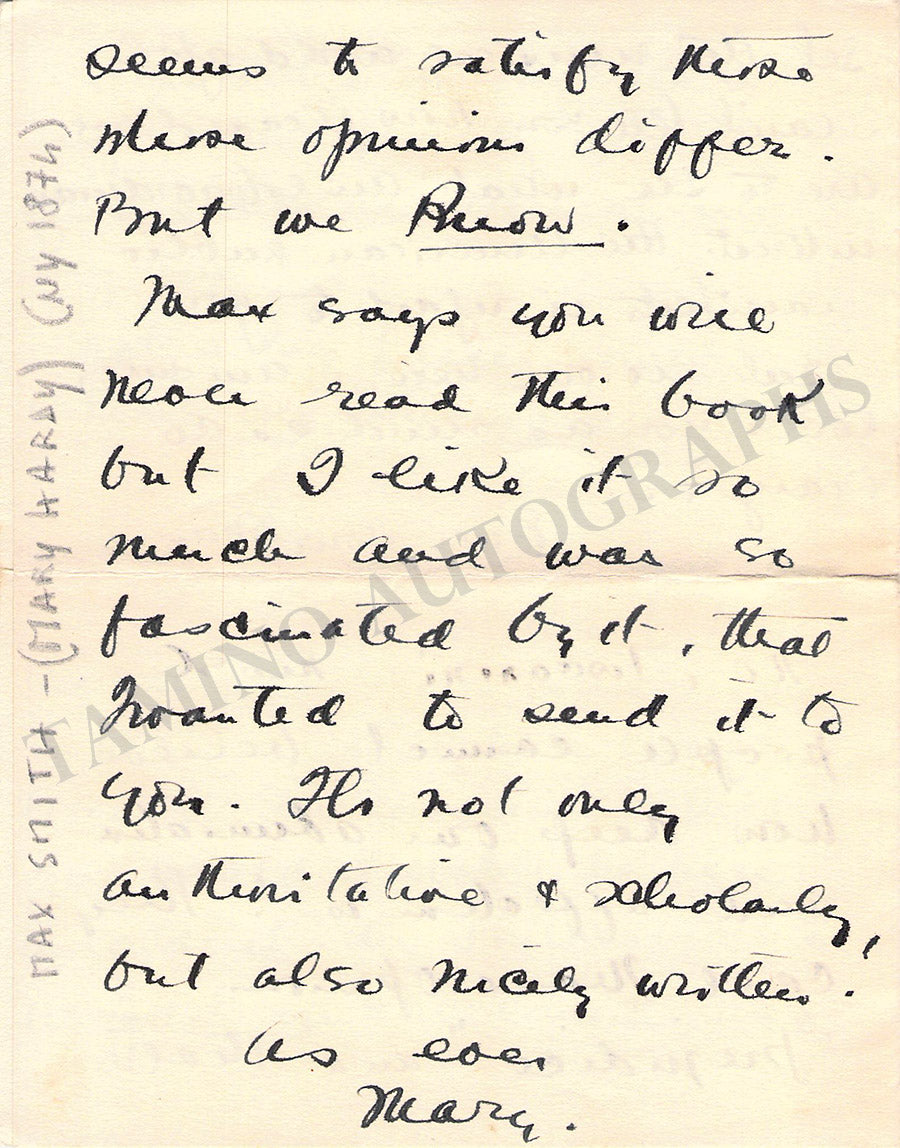 seems to satisfy those
whose opinions differ.
But we Know.
Max says you will
never read this book
but I like it so
much and was so
fascinated by it, that
I wanted to send it to
you. Its not only
authoritative & scholarly,
but also nicely written!
As ever
Mary.
MAX SMITH - (MARY HARDY) (NY 1874)
TAMINO AUTOGRAPHS